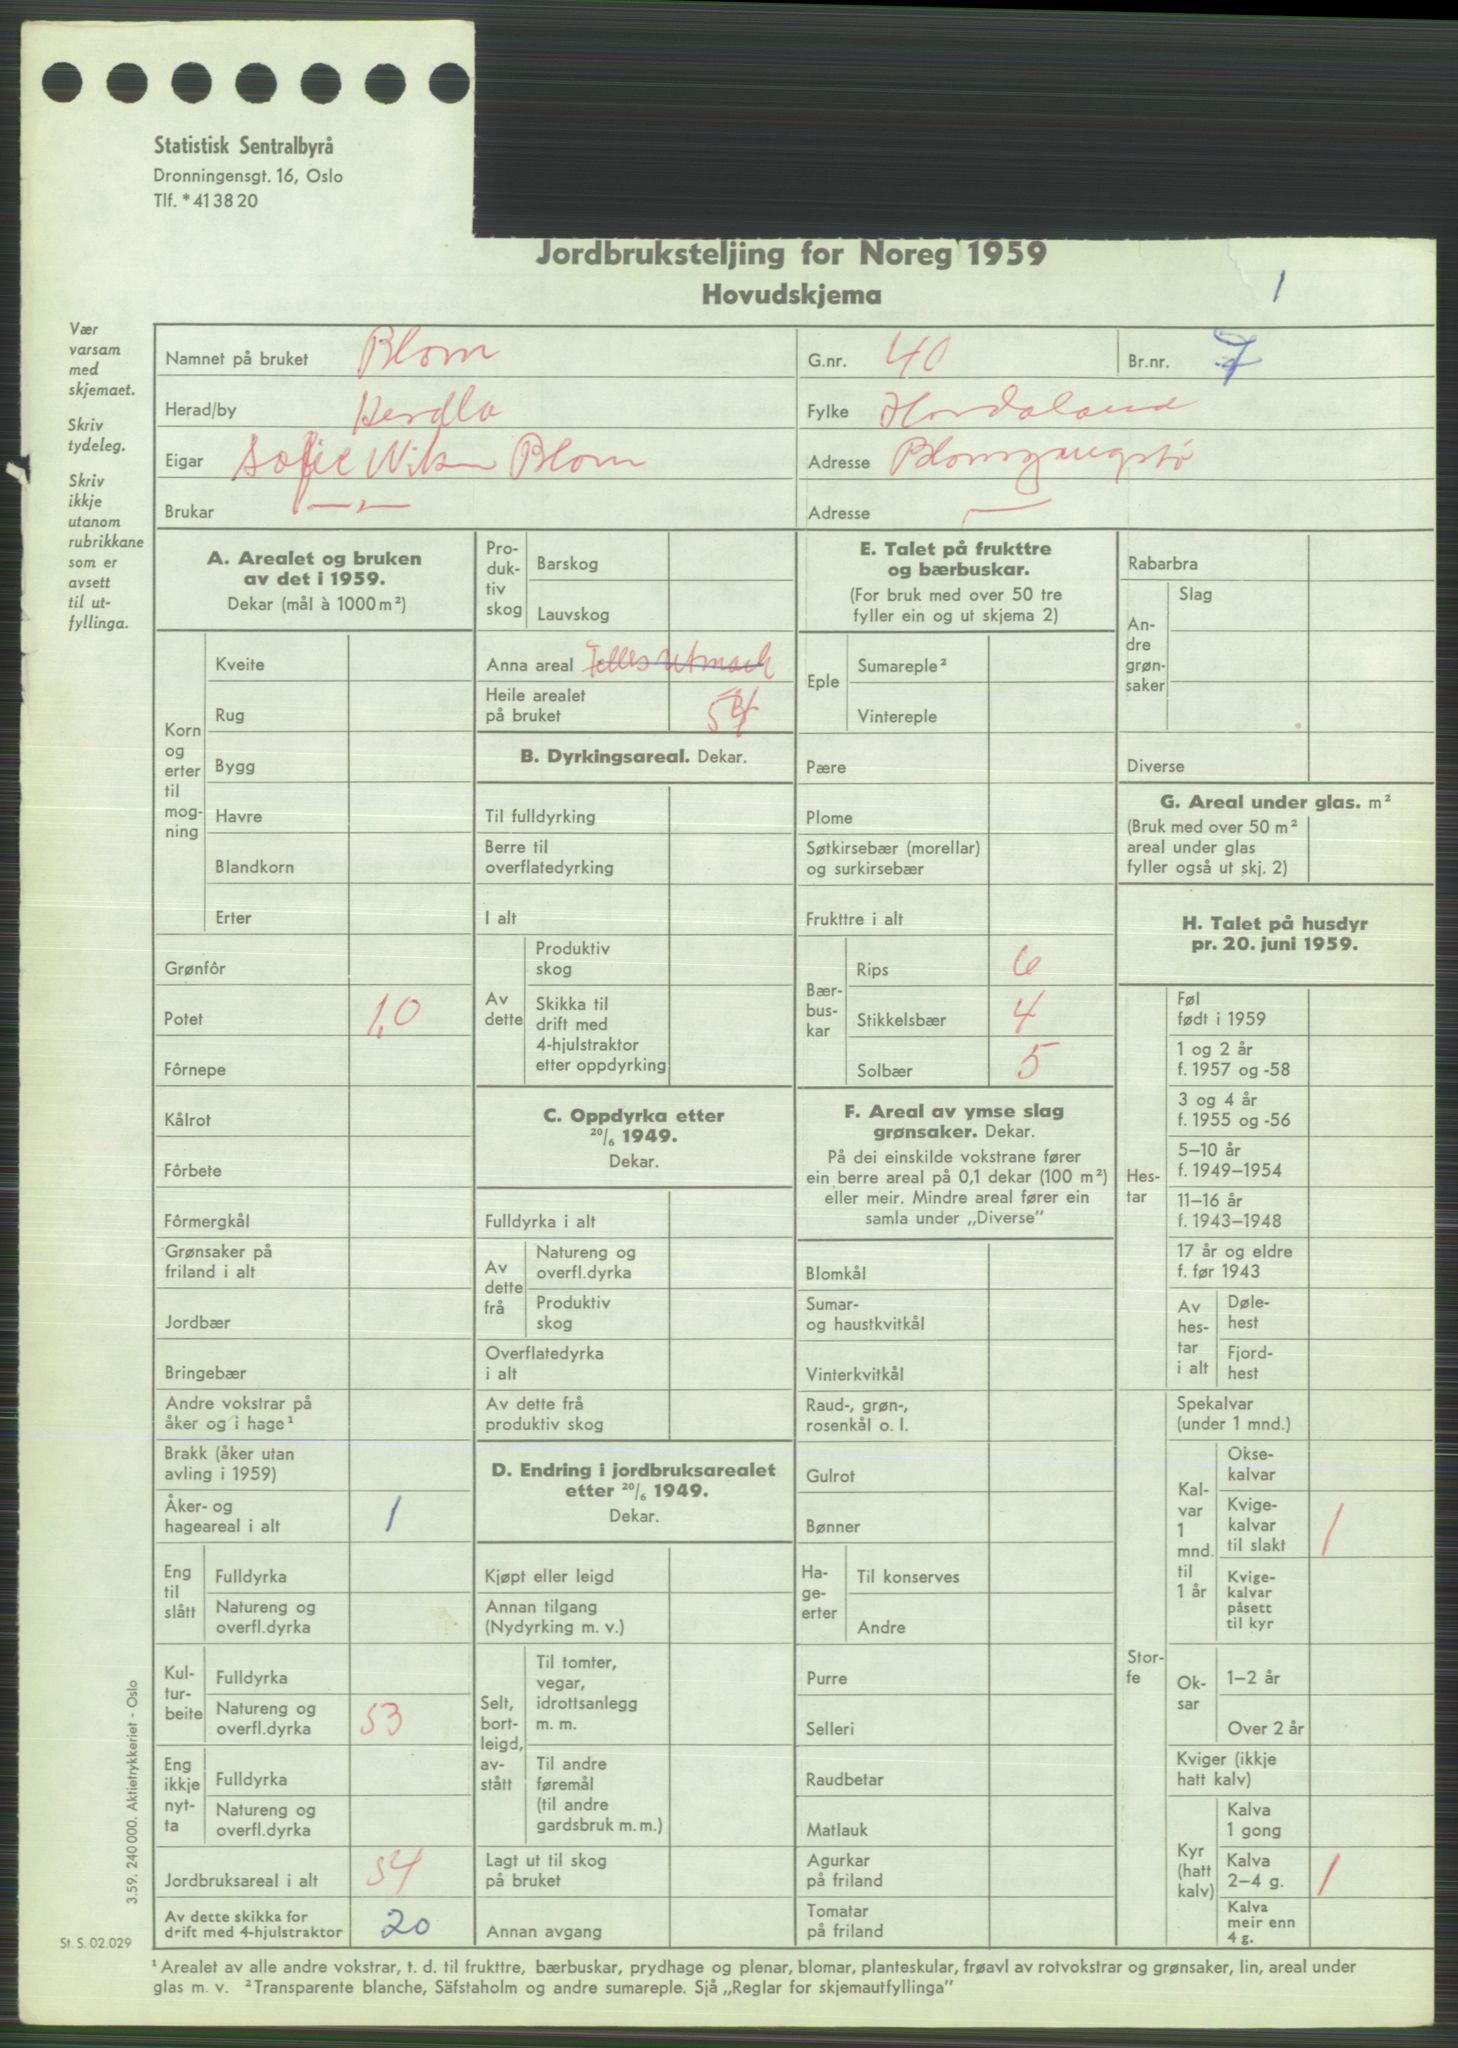 Statistisk Sentralbyrå
Dronningensgt. 16, Oslo
Tlf. *41 38 20
Jordbruksteljing for Noreg 1959
Hovudskjema
1
Vær
varsam
med
skjemaet.
Skriv
tydeleg.
Skriv
ikkje
utanom
rubrikkane
som er
avsett
til ut-
fyllinga.
Namnet på bruket Blom G.nr. 40 Br.nr. 7
Herad/by Herdla Fylke Hordaland
Eigar Sofie Nilsen Blom Adresse
Brukar —„— Adresse —
A. Arealet og bruken
av det i 1959.
Dekar (mål à 1000 m²)
Korn
og
erter
til
mog-
ning
Kveite
Rug
Bygg
Havre
Blandkorn
Erter
Grønfôr
Potet 1,0
Fôrnepe
Kålrot
Fôrbete
Fôrmergkål
Grønsaker på
friland i alt
Jordbær
Bringebær
Andre vokstrar på
åker og i hage¹
Brakk (åker utan
avling i 1959)
Åker- og
hageareal i alt 1
Eng
til
slått
Fulldyrka
Natureng og
overfl.dyrka
Kul-
tur-
beite
Fulldyrka
Natureng og
overfl.dyrka 53
Eng
ikkje
nyt-
ta
Fulldyrka
Natureng og
overfl.dyrka
Jordbruksareal i alt 54
Av dette skikka for
drift med 4-hjulstraktor 20
Pro-
duk-
tiv
skog
Barskog
Lauvskog
Anna areal Felles utmark
Heile arealet
på bruket 54
B. Dyrkingsareal. Dekar.
Til fulldyrking
Berre til
overflatedyrking
I alt
Av
dette
Produktiv
skog
Skikka til
drift med
4-hjulstraktor
etter oppdyrking
C. Oppdyrka etter
20/6 1949.
Dekar.
Fulldyrka i alt
Av
dette
frå
Natureng og
overfl.dyrka
Produktiv
skog
Overflatedyrka
i alt
Av dette frå
produktiv skog
D. Endring i jordbruksarealet
etter 20/6 1949.
Dekar.
Kjøpt eller leigd
Annan tilgang
(Nydyrking m. v.)
Selt,
bort-
leigd,
av-
stått
Til tomter,
vegar,
idrottsanlegg
m. m.
Til andre
føremål
(til andre
gardsbruk m. m.)
Lagt ut til skog
på bruket
Annan avgang
E. Talet på frukttre
og bærbuskar.
(For bruk med over 50 tre
fyller ein og ut skjema 2)
Eple
Sumareple²
Vintereple
Pære
Plome
Søtkirsebær (morellar)
og surkirsebær
Frukttre i alt
Bær-
bus-
kar
Rips 6
Stikkelsbær 4
Solbær 5
F. Areal av ymse slag
grønsaker. Dekar.
På dei einskilde vokstrane fører
ein berre areal på 0,1 dekar (100 m²)
eller meir. Mindre areal fører ein
samla under „Diverse”
Blomkål
Sumar-
og haustkvitkål
Vinterkvitkål
Raud-, grøn-,
rosenkål o. l.
Gulrot
Bønner
Ha-
ge-
erter
Til konserves
Andre
Purre
Selleri
Raudbetar
Matlauk
Agurkar
på friland
Tomatar
på friland
Rabarbra
An-
dre
grøn-
saker
Slag
Diverse
G. Areal under glas. m²
(Bruk med over 50 m²
areal under glas
fyller også ut skj. 2)
H. Talet på husdyr
pr. 20. juni 1959.
Hes-
tar
Føl
født i 1959
1 og 2 år
f. 1957 og -58
3 og 4 år
f. 1955 og -56
5–10 år
f. 1949–1954
11–16 år
f. 1943–1948
17 år og eldre
f. før 1943
Av
hes-
tar
i alt
Døle-
hest
Fjord-
hest
Stor-
fe
Spekalvar
(under 1 mnd.)
Kal-
var
1
mnd.
til
1 år
Okse-
kalvar
Kvige-
kalvar
til slakt 1
Kvige-
kalvar
påsett
til kyr
Ok-
sar
1–2 år
Over 2 år
Kviger (ikkje
hatt kalv)
Kyr
(hatt
kalv)
Kalva
1 gong
Kalva
2–4 g. 1
Kalva
meir enn
4 g.
3.59. 240 000. Aktietrykkeriet - Oslo
St. S. 02.029
¹ Arealet av alle andre vokstrar, t. d. til frukttre, bærbuskar, prydhage og plenar, blomar, planteskular, frøavl av rotvokstrar og grønsaker, lin, areal under
glas m. v. ² Transparente blanche, Säfstaholm og andre sumareple. Sjå „Reglar for skjemautfyllinga”